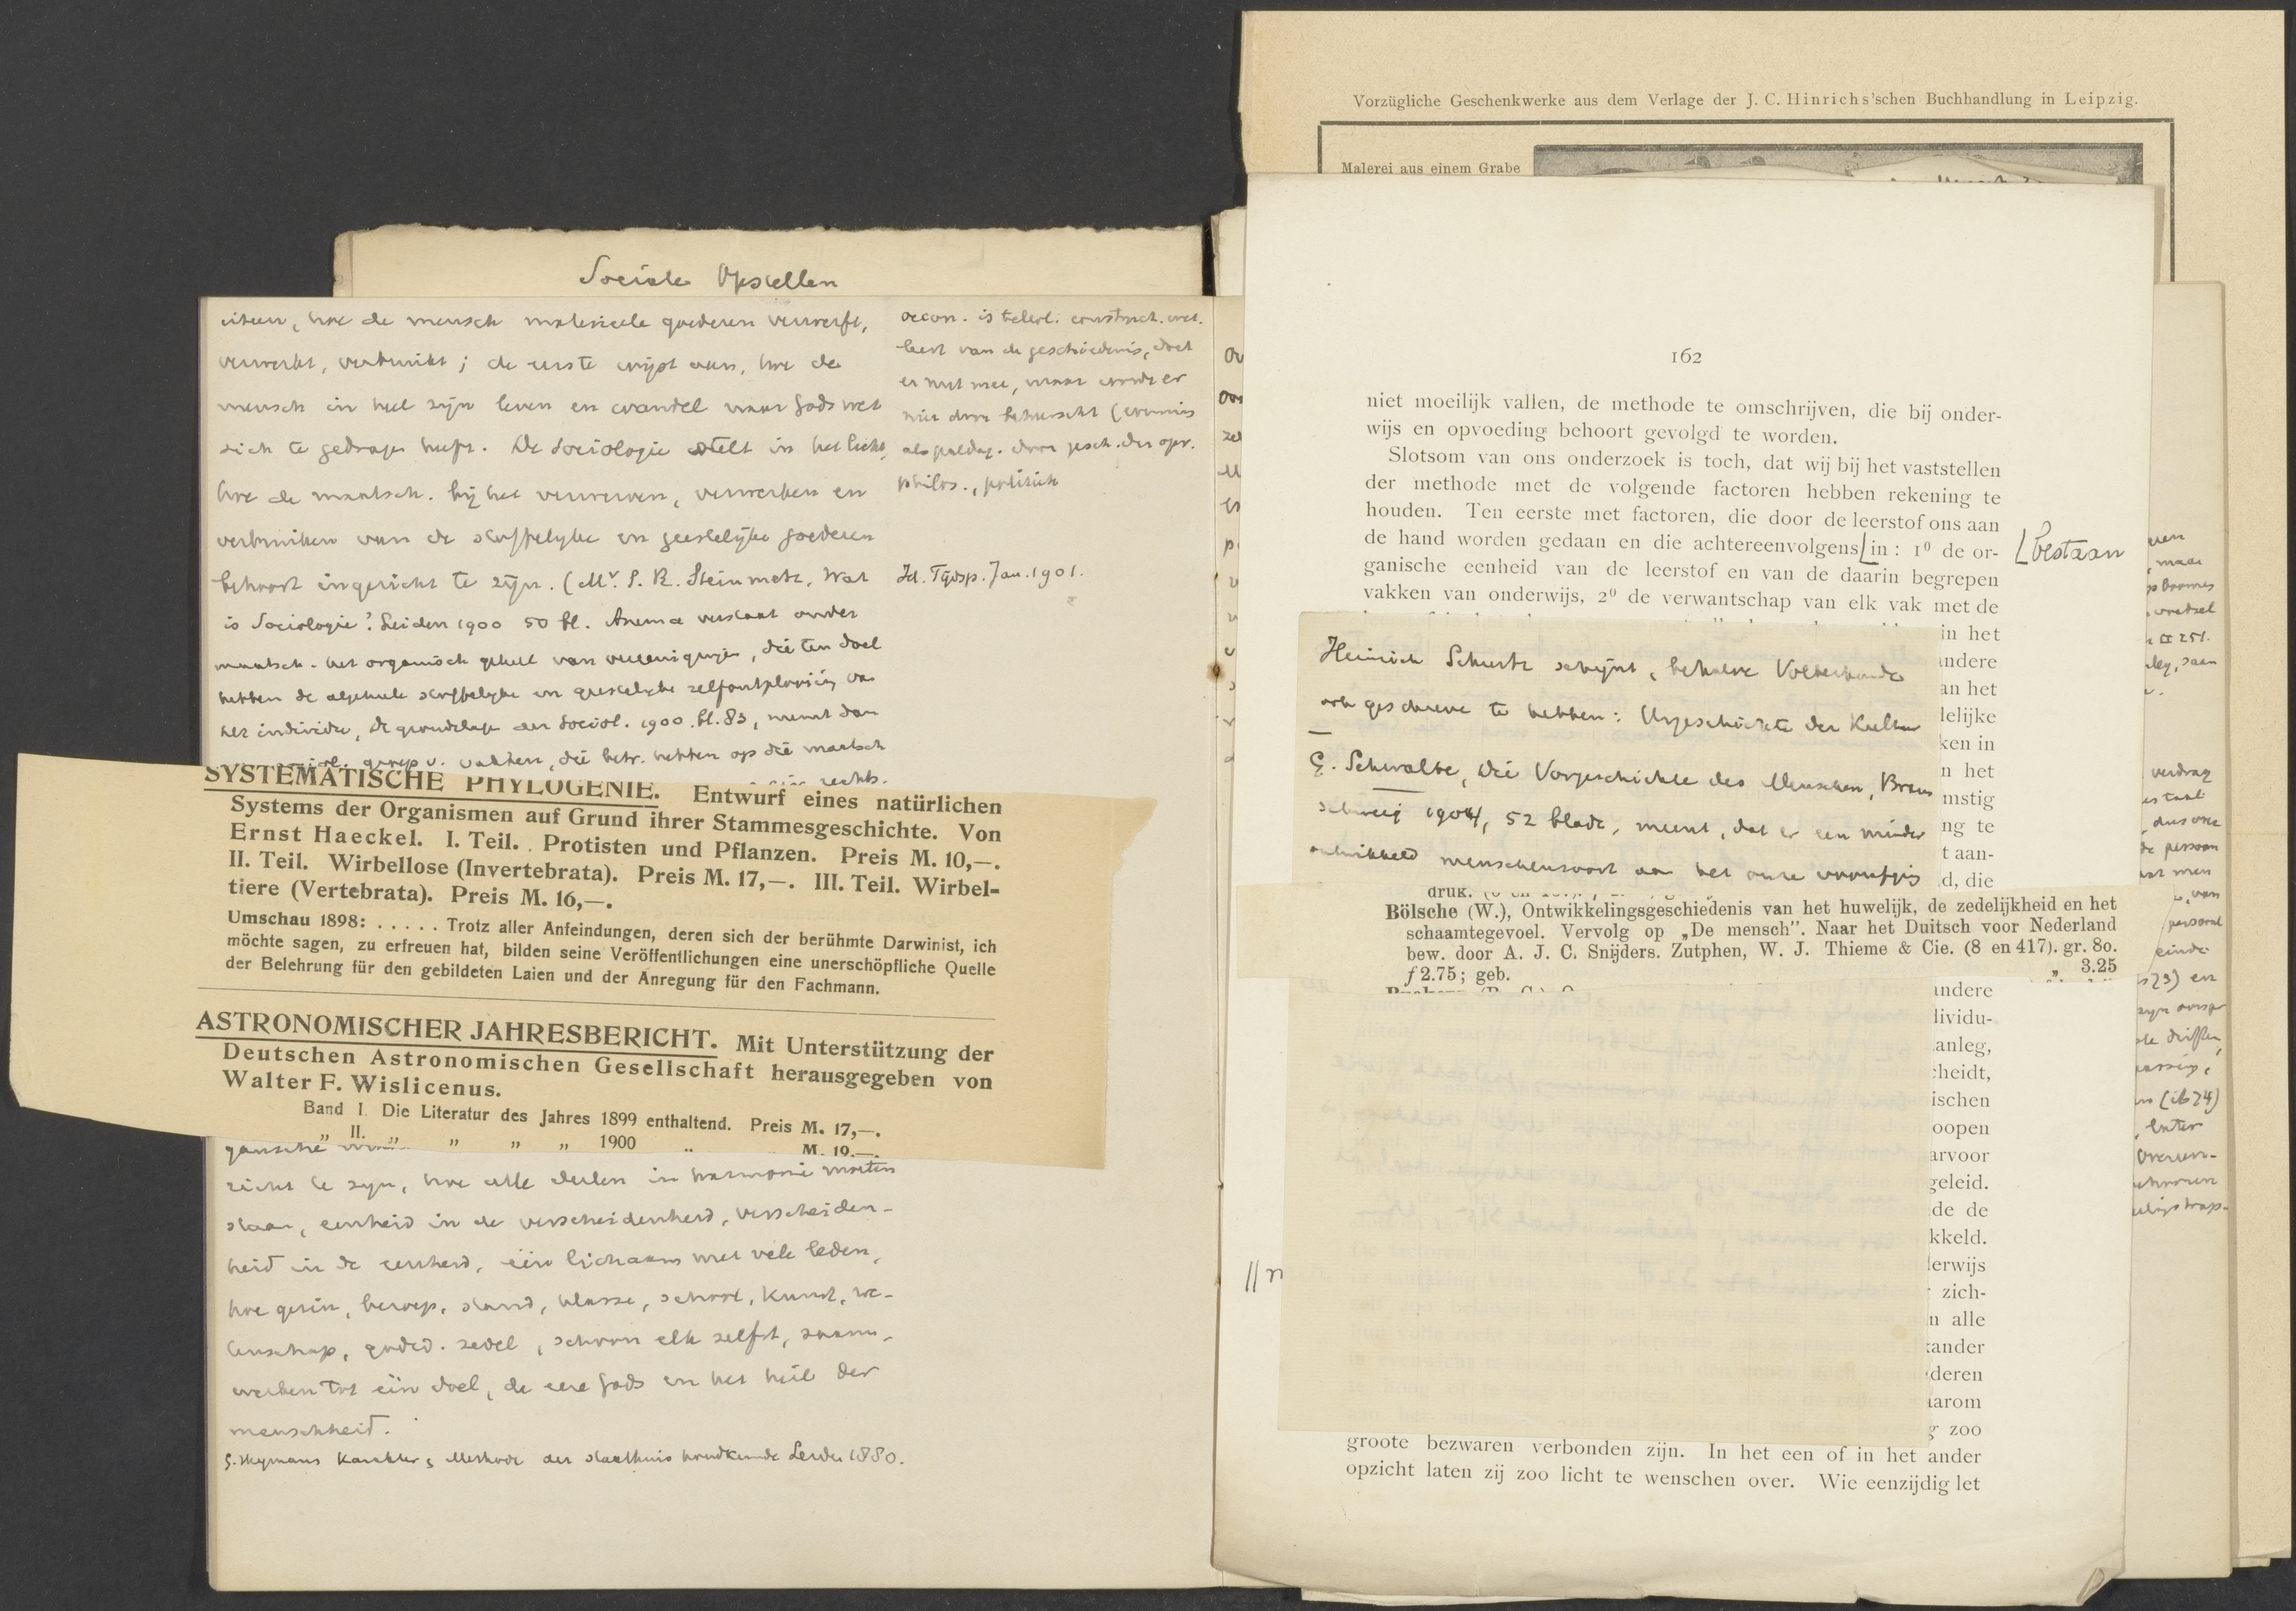 Sociale Opstellen
uiteen, hoe de mensch materieele goederen verwerft,
verwerkt, verbruikt; de eerste wijst aan, hoe de
mensch in heel zijn leven en wandel naar Gods wet
zich te gedragen heeft. De Sociologie stelt in het licht,
hoe de maatsch. bij het verwerven, verwerken en
verbruiken van de stoffelijke en geestelijke goederen
behoort ingericht te zijn. (Mr. S. R. Steinmetz, Wat
is Sociologie? Leiden 1900 50 bl. Anema verstaat onder
maatsch. het organisch geheel van vereenigingen, die ten doel
hebben de algeheele stoffelijke en geestelijke zelfontplooiing van
het individu, de grondslagen der Sociol. 1900 bl. 83, neemt dan
groep v. vakken, die betr. hebben op die maatsch
rechts.
oecon. is
leert van de geschiedenis, doet
er nut mee, maar wordt er
niet door beheerscht (evenmin
als paedag. door gesch. der opv.
philos., politiek
Td. Tijdsp. Jan. 1901.
SYSTEMATISCHE PHYLOGENIE. Entwurf eines natürlichen
Systems der Organismen auf Grund ihrer Stammesgeschichte. Von
Ernst Haeckel. I. Teil. Protisten und Pflanzen. Preis M. 10,—.
II. Teil. Wirbellose (Invertebrata). Preis M. 17,—. III. Teil. Wirbel-
tiere (Vertebrata). Preis M. 16,—.
Umschau 1898: . . . . . Trotz aller Anfeindungen, deren sich der berühmte Darwinist, ich
möchte sagen, zu erfreuen hat, bilden seine Veröffentlichungen eine unerschöpfliche Quelle
der Belehrung für den gebildeten Laien und der Anregung für den Fachmann.
ASTRONOMISCHER JAHRESBERICHT. Mit Unterstützung der
Deutschen Astronomischen Gesellschaft herausgegeben von
Walter F. Wislicenus.
Band I. Die Literatur des Jahres 1899 enthaltend. Preis M. 17,—.
„ II. „ „ „ 1900 „ M. 19.—.
gansche
richt te zijn, hoe alle deelen in harmonie moeten
staan, eenheid in de verscheidenheid, verscheiden-
heid in de eenheid, één lichaam met vele leden,
hoe gezin, beroep, stand, klasse, school, kunst, we-
tenschap, godsd. zedel, schoon elk zelfst, saam-
werken tot één doel, de eere Gods en het heil der
menschheid.
G. Heymans Karakter & Methode der staathuishoudkunde Leiden 1880.
Vorzügliche Geschenkwerke aus dem Verlage der J. C. Hinrichs'schen Buchhandlung in Leipzig.
Malerei aus einem Grabe
162
niet moeilijk vallen, de methode te omschrijven, die bij onder-
wijs en opvoeding behoort gevolgd te worden.
Slotsom van ons onderzoek is toch, dat wij bij het vaststellen
der methode met de volgende factoren hebben rekening te
houden. Ten eerste met factoren, die door de leerstof ons aan
de hand worden gedaan en die achtereenvolgens in: 1⁰ de or-
bestaan
ganische eenheid van de leerstof en van de daarin begrepen
vakken van onderwijs, 2⁰ de verwantschap van elk vak met de
in het
andere
an het
lelijke
ken in
n het
mstig
ng te
t aan-
d, die
Heinrich Schurtz schijnt, behalve Völkerkunde
ook geschreven te hebben: Urgeschichte der Kultur
G. Schwalbe, Die Vorgeschichte des Menschen, Braun
schweig 1904, 52 bladz, meent, dat er een minder
ontwikkeld menschensoort aan het onze voorafging
druk.
Bölsche (W.), Ontwikkelingsgeschiedenis van het huwelijk, de zedelijkheid en het
schaamtegevoel. Vervolg op „De mensch”. Naar het Duitsch voor Nederland
bew. door A. J. C. Snijders. Zutphen, W. J. Thieme & Cie. (8 en 417). gr. 8o.
ƒ 2.75; geb. „ 3.25
andere
lividu-
anleg,
cheidt,
ischen
oopen
arvoor
geleid.
de de
kkeld.
lerwijs
zich-
n alle
kander
deren
aarom
g zoo
groote bezwaren verbonden zijn. In het een of in het ander
opzicht laten zij zoo licht te wenschen over. Wie eenzijdig let
maar
verdrag
dus over
de persoon
van
persoonl
(ib 74)
later